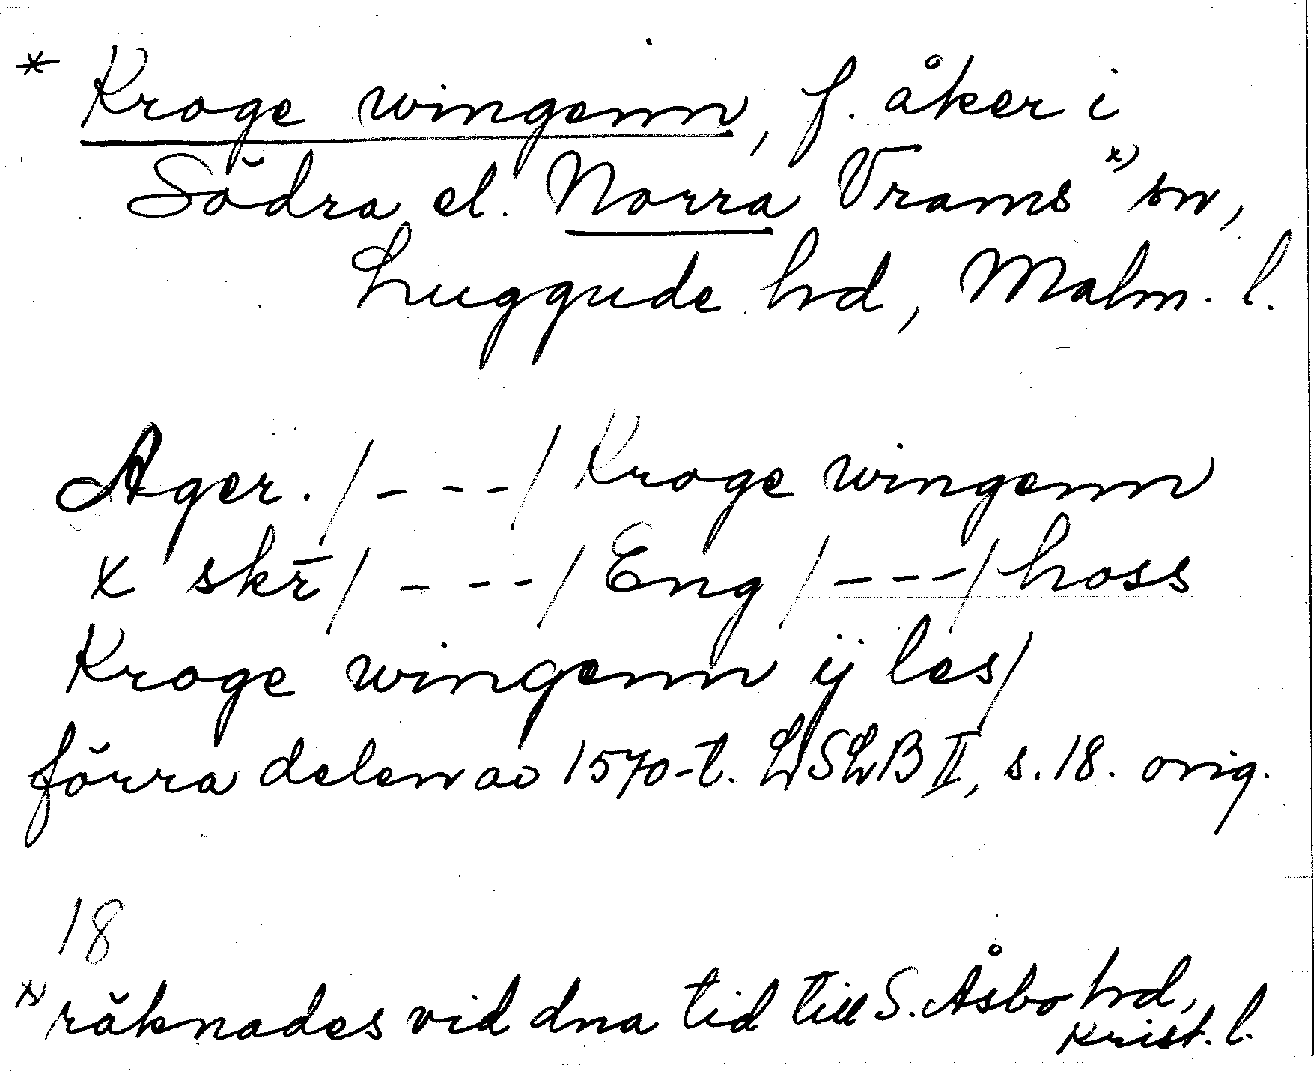 * Kroge wingenn, f. åker i
Södra el. Norra Vrams x) sn,
Luggude hd, Malm. l.
Ager. /- - -/ Kroge wingenn
x skr̄ /- - -/ Eng /- - -/ hoss
Kroge wingenn ij les/
förra delen av 1570-t. LSLB II, s. 18. orig.
18
x) räknades vid dna tid till S. Åsbo hd,
Krist. l.